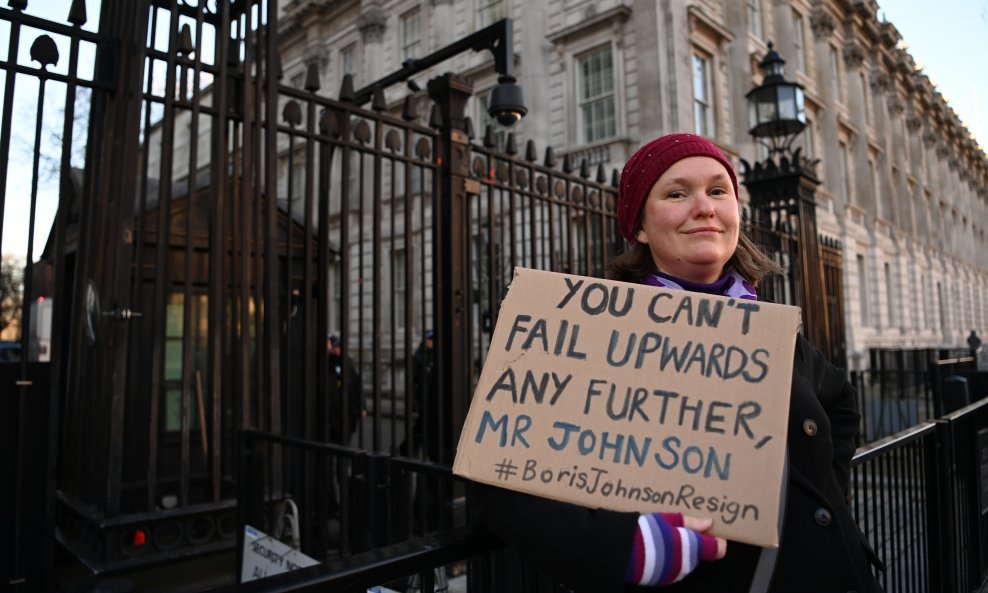 YOU CAN'T
FAIL UPWARDS
ANY FURTHER,
MR JOHNSON
#BorisJohnsonResign
SECURITY